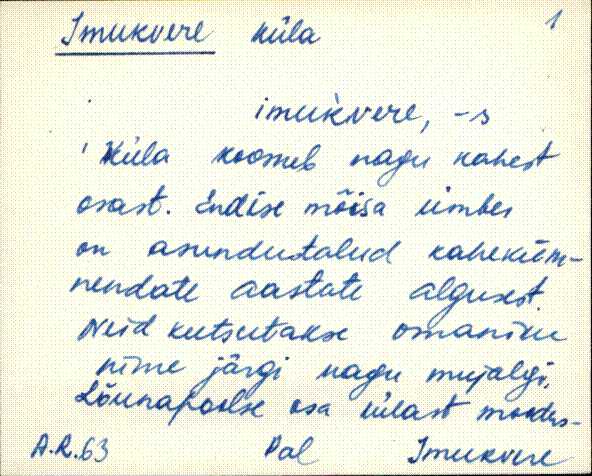 Imukvere küla 1
imukvere, -s
Küla koosneb nagu kahest
osast. Endise mõisa ümber
on asundustalud kaheküm-
nendate aastate algusest.
Neid kutsutakse omaniku
nime järgi nagu mujalgi.
Lõunapoolse osa külast moodus-
A.R. 63 Pal Imukvere